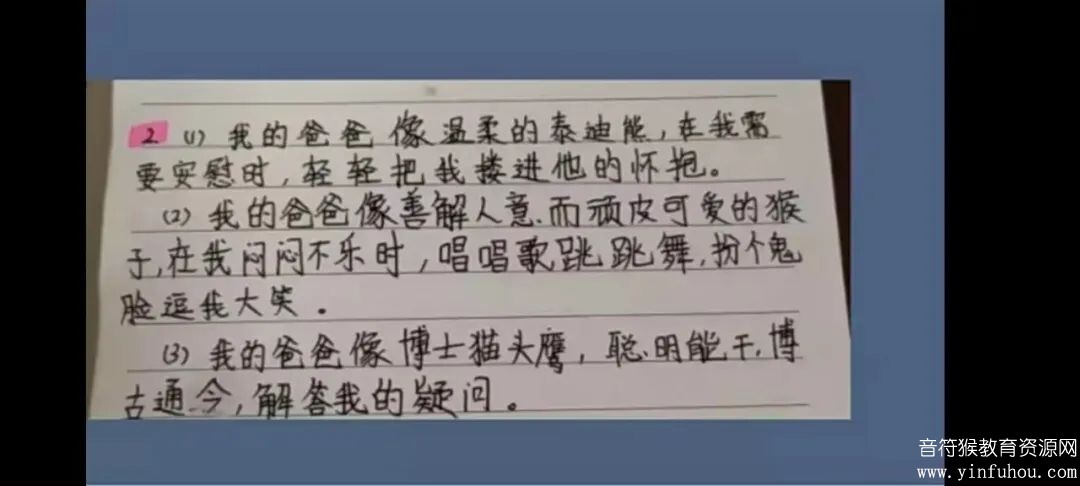 2 (1) 我的爸爸像温柔的泰迪熊,在我需
要安慰时,轻轻把我搂进他的怀抱。
(2) 我的爸爸像善解人意.而顽皮可爱的猴
子,在我闷闷不乐时,唱唱歌跳跳舞,扮个鬼
脸逗我大笑。
(3) 我的爸爸像博士猫头鹰,聪明能干,博
古通今,解答我的疑问。
音符猴教育资源网
www.yinfuhou.com